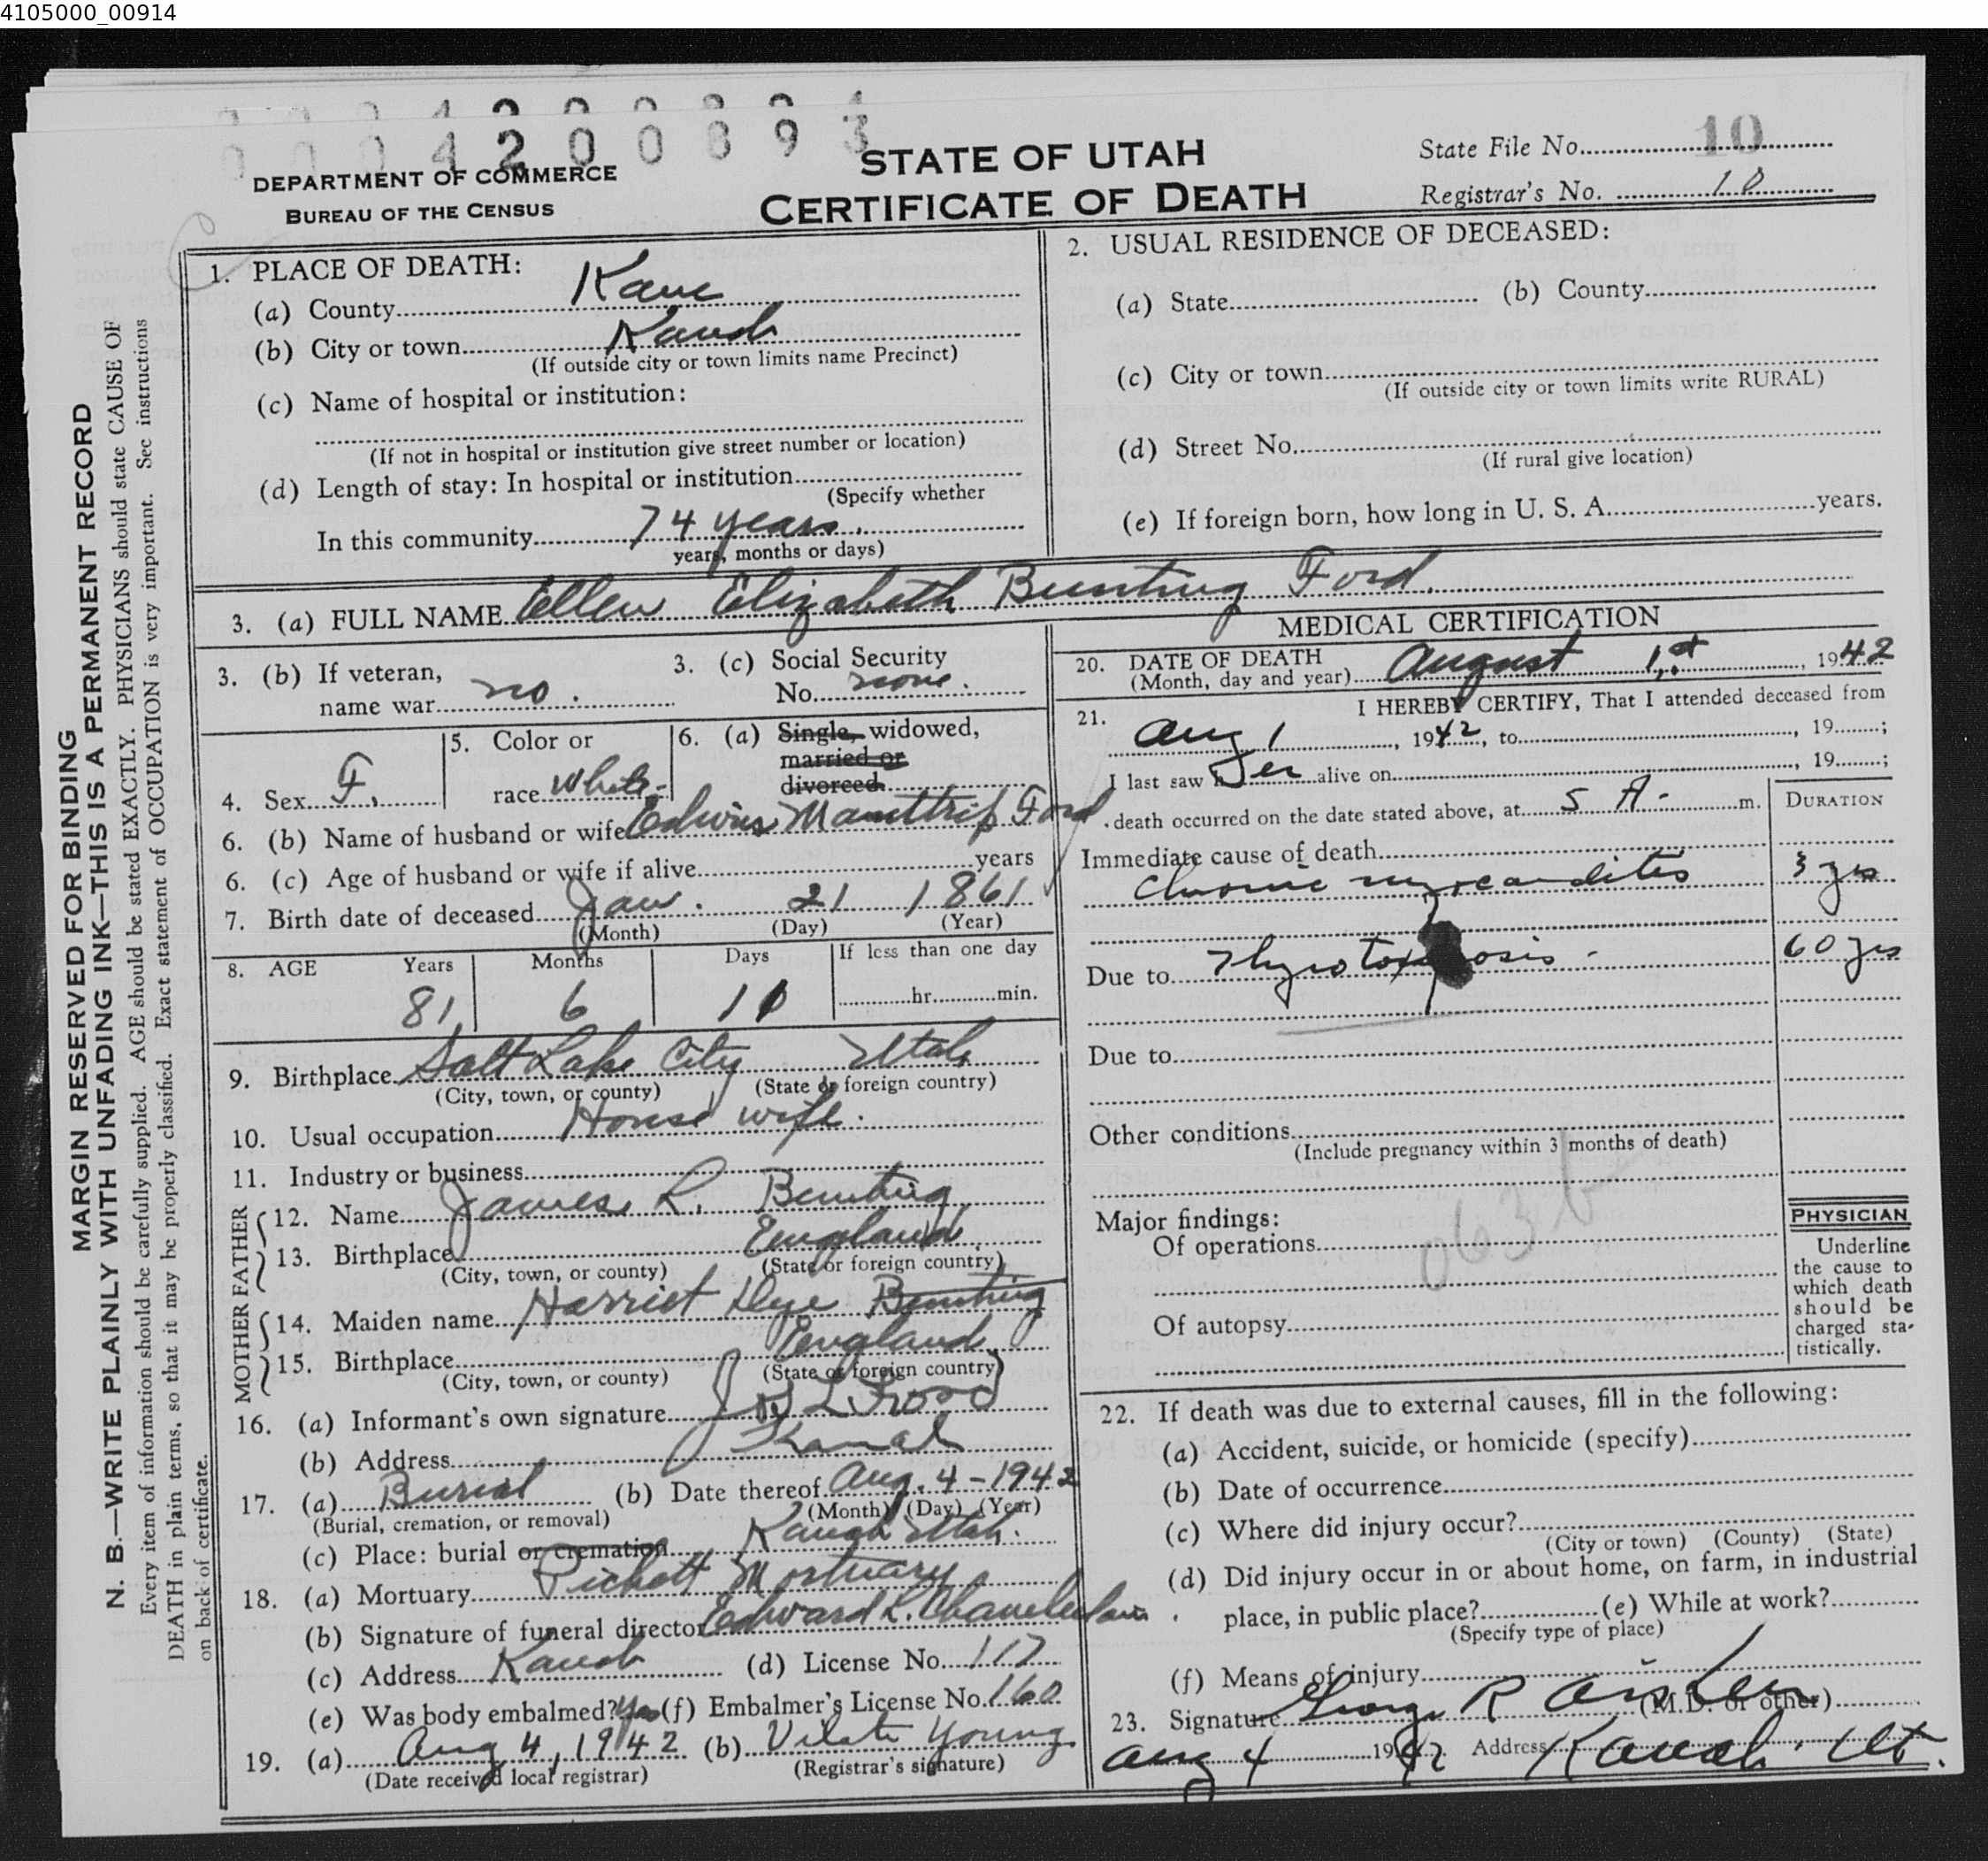 4105000_00914
0004200893
DEPARTMENT OF COMMERCE
BUREAU OF THE CENSUS
STATE OF UTAH
CERTIFICATE OF DEATH
State File No. 10
Registrar's No. 10
1. PLACE OF DEATH:
(a) County Kane
(b) City or town Kanab
(If outside city or town limits name Precinct)
(c) Name of hospital or institution:
(If not in hospital or institution give street number or location)
(d) Length of stay: In hospital or institution
(Specify whether
In this community 74 years
years, months or days)
2. USUAL RESIDENCE OF DECEASED:
(a) State (b) County
(c) City or town
(If outside city or town limits write RURAL)
(d) Street No.
(If rural give location)
(e) If foreign born, how long in U. S. A. years.
3. (a) FULL NAME Ellen Elizabeth Bunting Ford.
3. (b) If veteran,
name war no.
3. (c) Social Security
No. none.
4. Sex F.
5. Color or
race White
6. (a) Single, widowed,
married or
divorced
6. (b) Name of husband or wife Edwin Ford
6. (c) Age of husband or wife if alive years
7. Birth date of deceased Jan. 21 1861
(Month) (Day) (Year)
8. AGE Years Months Days If less than one day
81 6 11 hr. min.
9. Birthplace Salt Lake City Utah
(City, town, or county) (State or foreign country)
10. Usual occupation House wife.
11. Industry or business
FATHER
12. Name James L. Bunting
13. Birthplace England
(City, town, or county) (State or foreign country)
MOTHER
14. Maiden name Harriet Dye Bunting
15. Birthplace England
(City, town, or county) (State or foreign country)
16. (a) Informant's own signature
(b) Address Kanab
17. (a) Burial (b) Date thereof Aug. 4-1942
(Burial, cremation, or removal) (Month) (Day) (Year)
(c) Place: burial or cremation Kanab Utah.
18. (a) Mortuary Pickett Mortuary
(b) Signature of funeral director Edward L. Chamberlain
(c) Address Kanab (d) License No. 117
(e) Was body embalmed? Yes (f) Embalmer's License No. 160
19. (a) Aug 4, 1942 (b) Vilate Young
(Date received local registrar) (Registrar's signature)
MEDICAL CERTIFICATION
20. DATE OF DEATH
(Month, day and year) August 1st, 1942
21. I HEREBY CERTIFY, That I attended deceased from
Aug 1, 1942, to , 19 ;
I last saw her alive on , 19 ;
death occurred on the date stated above, at 5 A. m.
DURATION
Immediate cause of death
Chronic myocarditis 3 yrs
Due to Thyrotoxicosis 60 yrs
Due to
Other conditions
(Include pregnancy within 3 months of death)
063b
Major findings:
Of operations
Of autopsy
PHYSICIAN
Underline
the cause to
which death
should be
charged sta-
tistically.
22. If death was due to external causes, fill in the following:
(a) Accident, suicide, or homicide (specify)
(b) Date of occurrence
(c) Where did injury occur?
(City or town) (County) (State)
(d) Did injury occur in or about home, on farm, in industrial
place, in public place? (e) While at work?
(Specify type of place)
(f) Means of injury
23. Signature George R Aiken (M.D. or other)
Aug 4 1942 Address Kanab. Ut.
MARGIN RESERVED FOR BINDING
N. B.—WRITE PLAINLY WITH UNFADING INK—THIS IS A PERMANENT RECORD
Every item of information should be carefully supplied. AGE should be stated EXACTLY. PHYSICIANS should state CAUSE OF
DEATH in plain terms, so that it may be properly classified. Exact statement of OCCUPATION is very important. See instructions
on back of certificate.